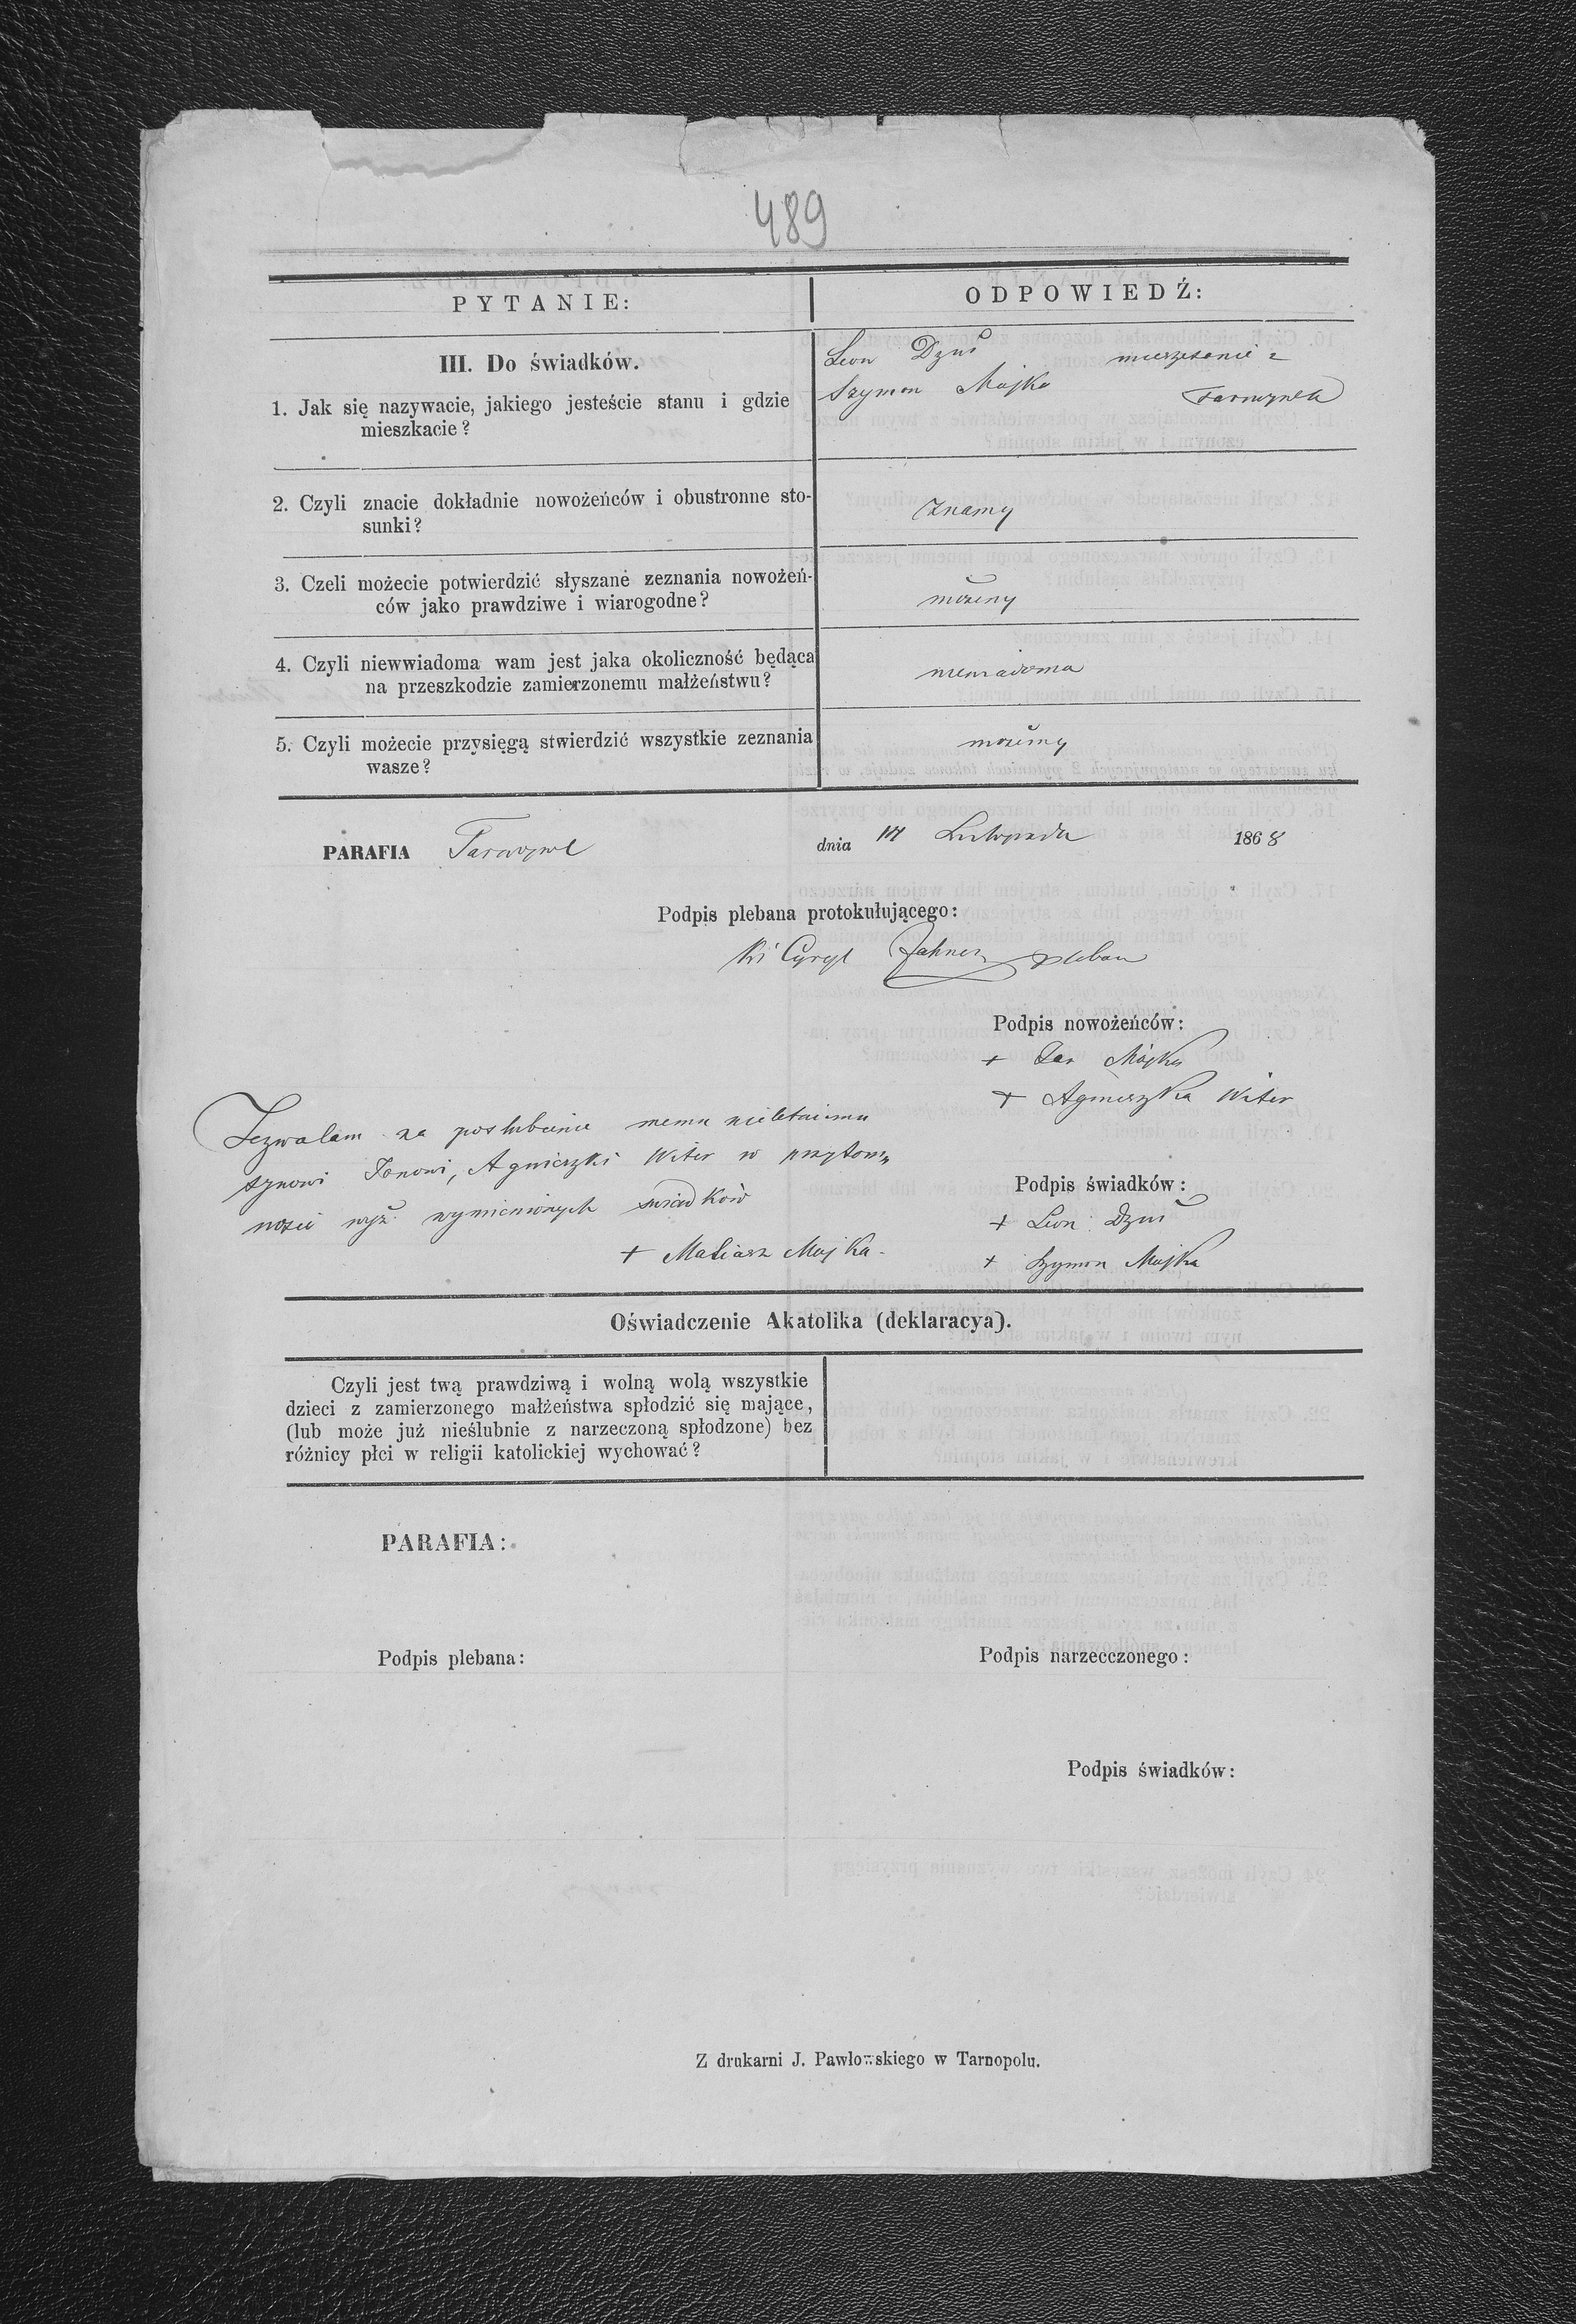 489
PYTANIE:
ODPOWIEDŹ:
III. Do świadków.
1. Jak się nazywacie, jakiego jesteście stanu i gdzie
mieszkacie?
Leon Dzuś mieszczanie z
Szymon Majka Tarnopola
2. Czyli znacie dokładnie nowożeńców i obustronne sto-
sunki?
znamy
3. Czeli możecie potwierdzić słyszane zeznania nowożeń-
ców jako prawdziwe i wiarogodne?
możemy
4. Czyli niewwiadoma wam jest jaka okoliczność będąca
na przeszkodzie zamierzonemu małżeństwu?
niewiadoma
5. Czyli możecie przysięgą stwierdzić wszystkie zeznania
wasze?
możemy
PARAFIA Tarnopol dnia Listopada 1868
Podpis plebana protokułującego:
Cyryl pleban
Podpis nowożeńców:
+ Jan Majka
+ Agnieszka Witer
Zezwalam na poslubienie memu nieletniemu
synowi Janowi, Agnieszki Witer w przytom„
ności wyż wymienionych świadków
+ Matiasz Majka.
Podpis świadków:
+ Leon Dzuś
+ Szymon Majka
Oświadczenie Akatolika (deklaracya).
Czyli jest twą prawdziwą i wolną wolą wszystkie
dzieci z zamierzonego małżeństwa spłodzić się mające,
(lub może już nieślubnie z narzeczoną spłodzone) bez
różnicy płci w religii katolickiej wychować?
PARAFIA:
Podpis plebana:
Podpis narzecczonego:
Podpis świadków:
Z drukarni J. Pawłowskiego w Tarnopolu.